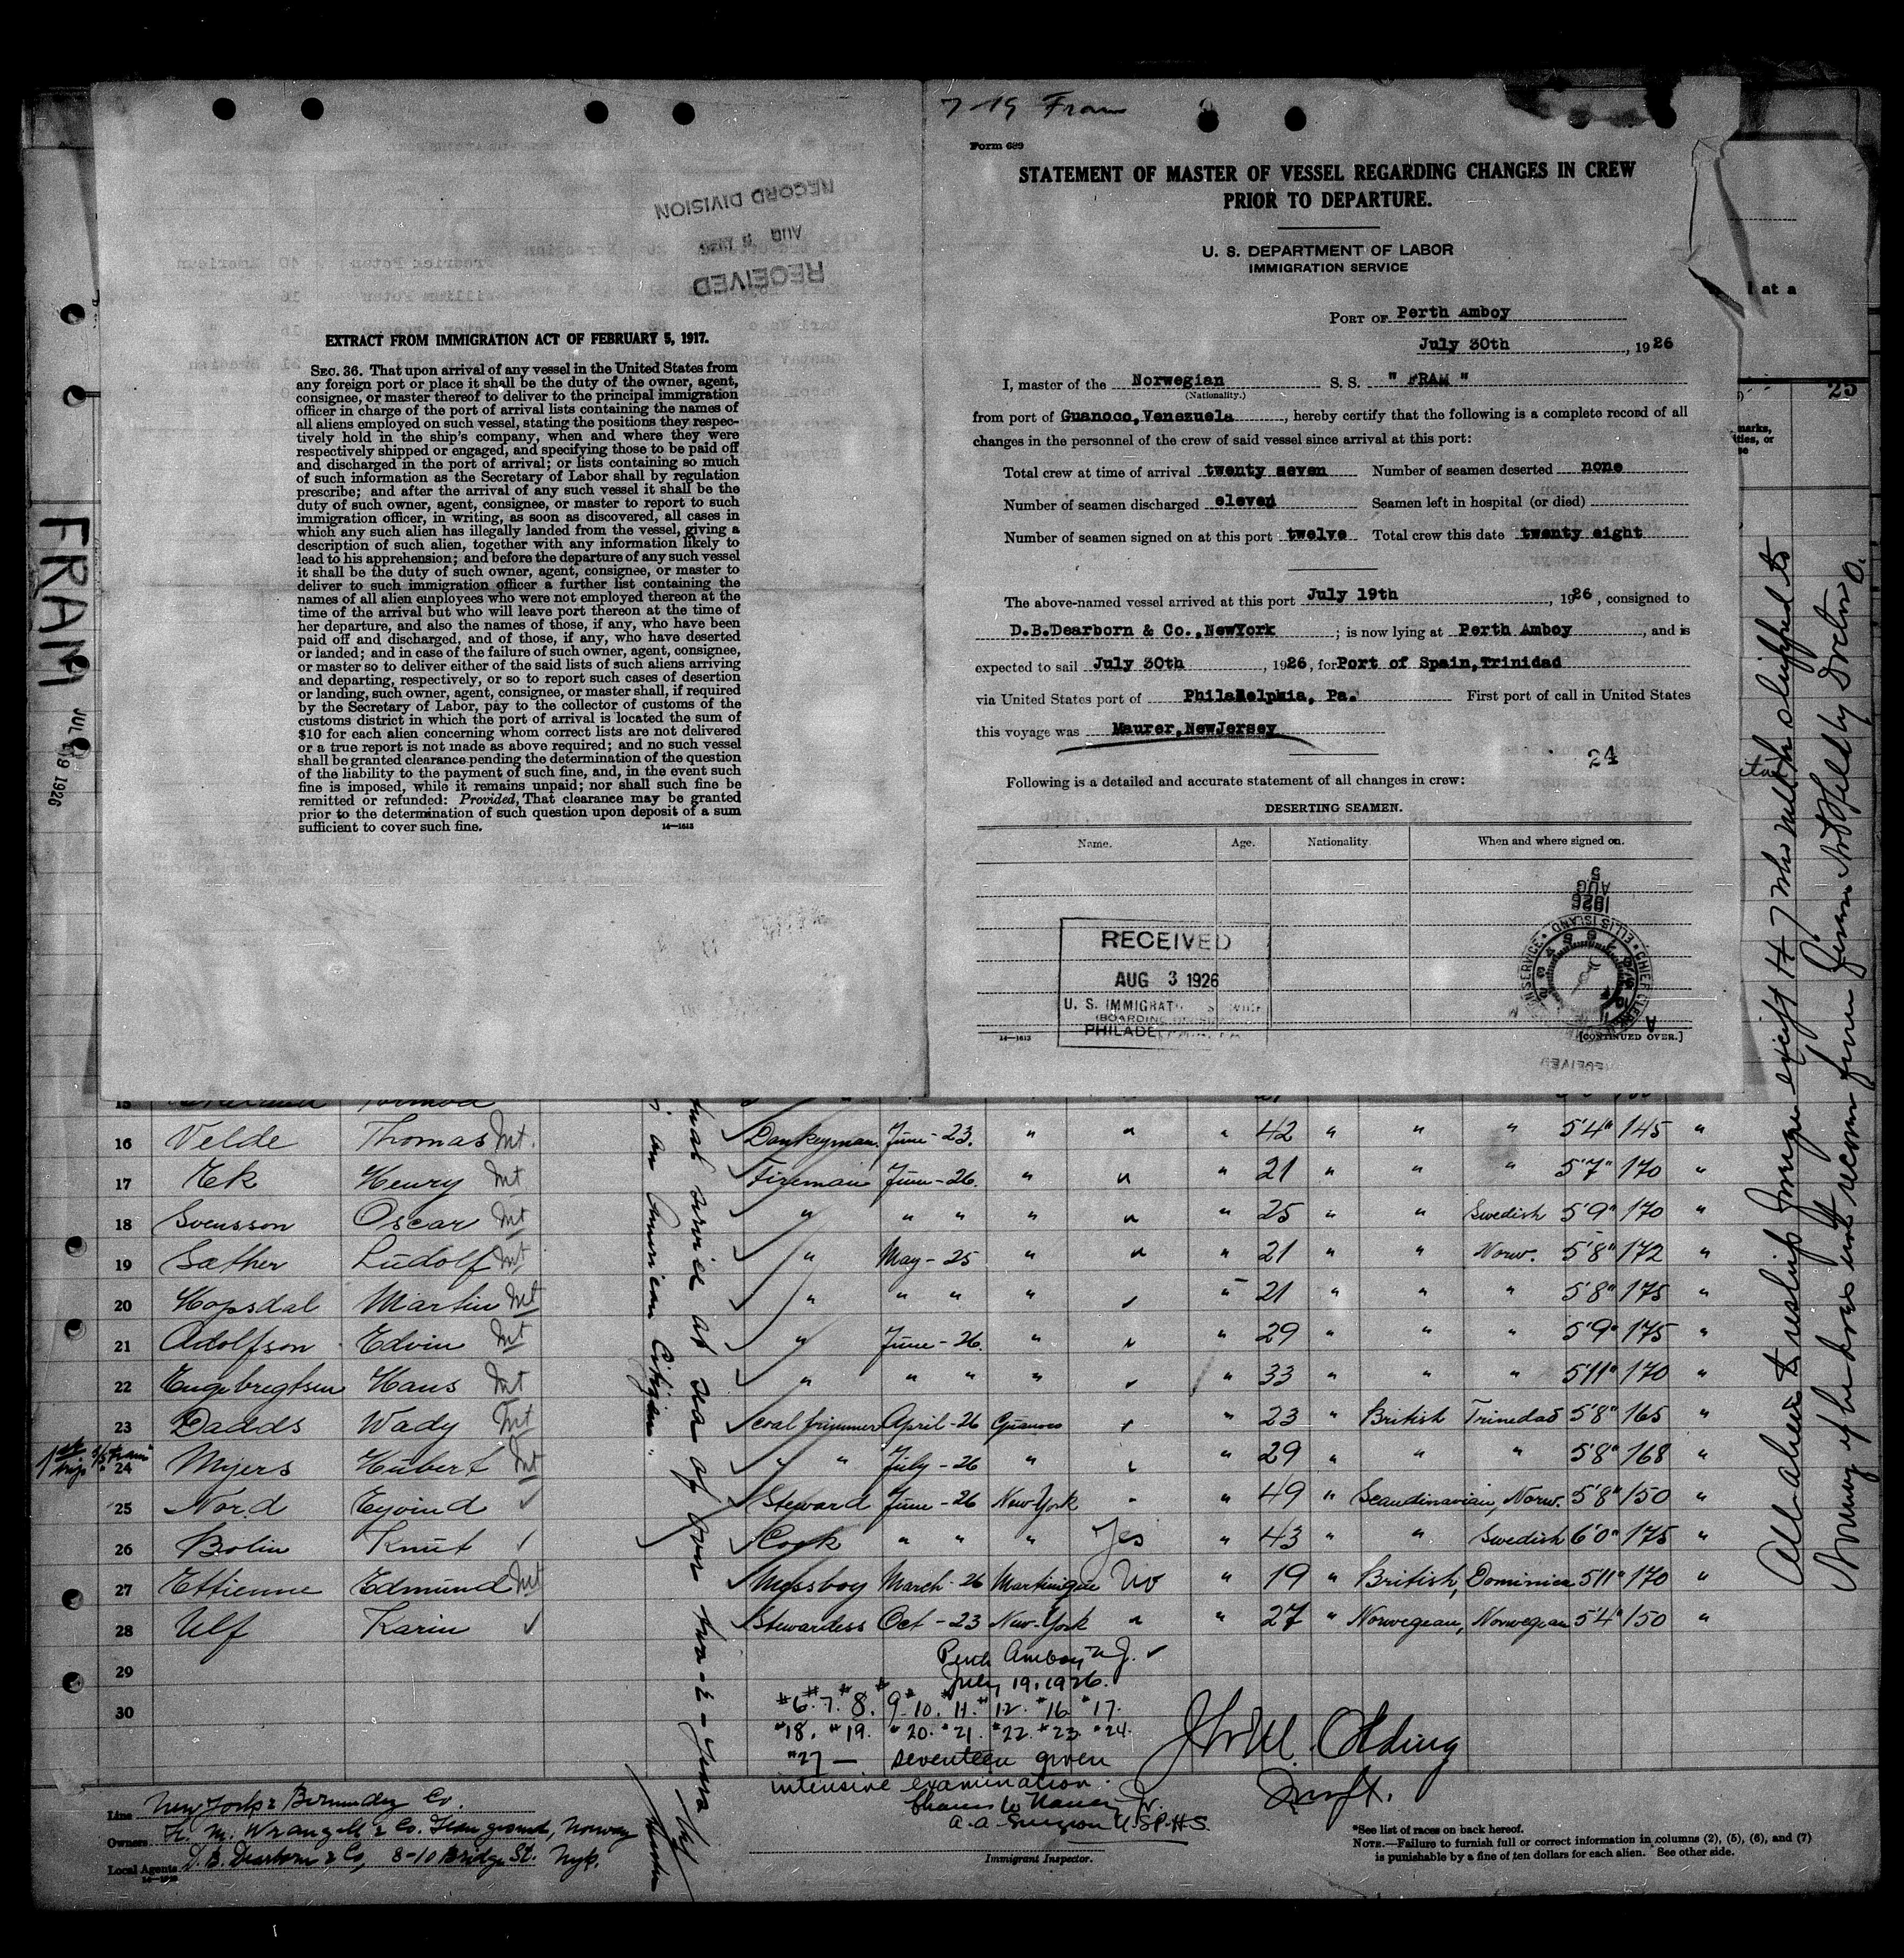 7-19 Fram
Form 689
STATEMENT OF MASTER OF VESSEL REGARDING CHANGES IN CREW
PRIOR TO DEPARTURE.
U. S. DEPARTMENT OF LABOR
IMMIGRATION SERVICE
PORT OF Perth Amboy
July 30th, 1926
I, master of the Norwegian S. S. " FRAM "
(Nationality.)
from port of Guanoco, Venezuela, hereby certify that the following is a complete record of all
changes in the personnel of the crew of said vessel since arrival at this port:
Total crew at time of arrival twenty seven Number of seamen deserted none
Number of seamen discharged eleven Seamen left in hospital (or died)
Number of seamen signed on at this port twelve Total crew this date twenty eight
The above-named vessel arrived at this port July 19th, 1926, consigned to
D.B.Dearborn & Co., NewYork; is now lying at Perth Amboy, and is
expected to sail July 30th, 1926, for Port of Spain, Trinidad
via United States port of Philadelphia, Pa. First port of call in United States
this voyage was Maurer, NewJersey
24
Following is a detailed and accurate statement of all changes in crew:
DESERTING SEAMEN.
Name. Age. Nationality. When and where signed on.
RECEIVED
AUG 3 1926
U. S. IMMIGRAT
PHILADE
14—1613
[CONTINUED OVER.]
RECORD DIVISION
RECEIVED
EXTRACT FROM IMMIGRATION ACT OF FEBRUARY 5, 1917.
SEC. 36. That upon arrival of any vessel in the United States from
any foreign port or place it shall be the duty of the owner, agent,
consignee, or master thereof to deliver to the principal immigration
officer in charge of the port of arrival lists containing the names of
all aliens employed on such vessel, stating the positions they respec-
tively hold in the ship's company, when and where they were
respectively shipped or engaged, and specifying those to be paid off
and discharged in the port of arrival; or lists containing so much
of such information as the Secretary of Labor shall by regulation
prescribe; and after the arrival of any such vessel it shall be the
duty of such owner, agent, consignee, or master to report to such
immigration officer, in writing, as soon as discovered, all cases in
which any such alien has illegally landed from the vessel, giving a
description of such alien, together with any information likely to
lead to his apprehension; and before the departure of any such vessel
it shall be the duty of such owner, agent, consignee, or master to
deliver to such immigration officer a further list containing the
names of all alien employees who were not employed thereon at the
time of the arrival but who will leave port thereon at the time of
her departure, and also the names of those, if any, who have been
paid off and discharged, and of those, if any, who have deserted
or landed; and in case of the failure of such owner, agent, consignee,
or master so to deliver either of the said lists of such aliens arriving
and departing, respectively, or so to report such cases of desertion
or landing, such owner, agent, consignee, or master shall, if required
by the Secretary of Labor, pay to the collector of customs of the
customs district in which the port of arrival is located the sum of
$10 for each alien concerning whom correct lists are not delivered
or a true report is not made as above required; and no such vessel
shall be granted clearance pending the determination of the question
of the liability to the payment of such fine, and, in the event such
fine is imposed, while it remains unpaid; nor shall such fine be
remitted or refunded: Provided, That clearance may be granted
prior to the determination of such question upon deposit of a sum
sufficient to cover such fine.
14—1613
FRAM
JUL 19 1926
at a
25
16 Velde Thomas Mt. Donkeyman June-23. " " " 42 " " " 5'4" 145 "
17 Ek Henry Mt Fireman June-26. " " " 21 " " " 5'7" 170 "
18 Svensson Oscar Mt " " " " " " 25 " " Swedish 5'9" 170 "
19 Sæther Ludolf Mt " May-25 " " " 21 " " Norw. 5'8" 172 "
20 Hopsdal Martin Mt " " " " " " 21 " " " 5'8" 175 "
21 Adolfson Edvin Mt " June-26. " " " 29 " " " 5'9" 175 "
22 Engebregtsen Hans Mt " " " " " " 33 " " " 5'11" 170 "
23 Dadds Wady Mt coal trimmer April-26 Guanoco " " 23 " British Trinedad 5'8" 165 "
24 Myers Hubert Mt " " July-26 " " " 29 " " " 5'8" 168 "
25 Nord Eyvind ✓ Steward June-26 New-York " " 49 " Scandinavian, Norw. 5'8" 150 "
26 Bolin Knut ✓ Cook " " " Yes " 43 " " Swedish 6'0" 175 "
27 Ettienne Edmund Mt Messboy March-26 Martinique No " 19 " British, Dominica 5'11" 170 "
28 Ulf Karin ✓ Stewardess Oct-23 New-York " " 27 " Norwegean, Norwegean 5'4" 150 "
29
30
Perth Amboy N.J. ✓
July 19, 1926.
#6. #7. #8. 9. #10. #11. #12. #16 #17.
#18. #19. #20. #21. #22. #23. #24.
#27 — seventeen given
intensive examination.
A.A. Surgeon U.S.P.H.S.
Immigrant Inspector.
Line New York & Bermudez Co.
Owners H. M. Wrangell & Co. Haugesund, Norway
Local Agents D. B. Dearborn & Co, 8-10 Bridge St. Nyk.
*See list of races on back hereof.
NOTE.—Failure to furnish full or correct information in columns (2), (5), (6), and (7)
is punishable by a fine of ten dollars for each alien. See other side.